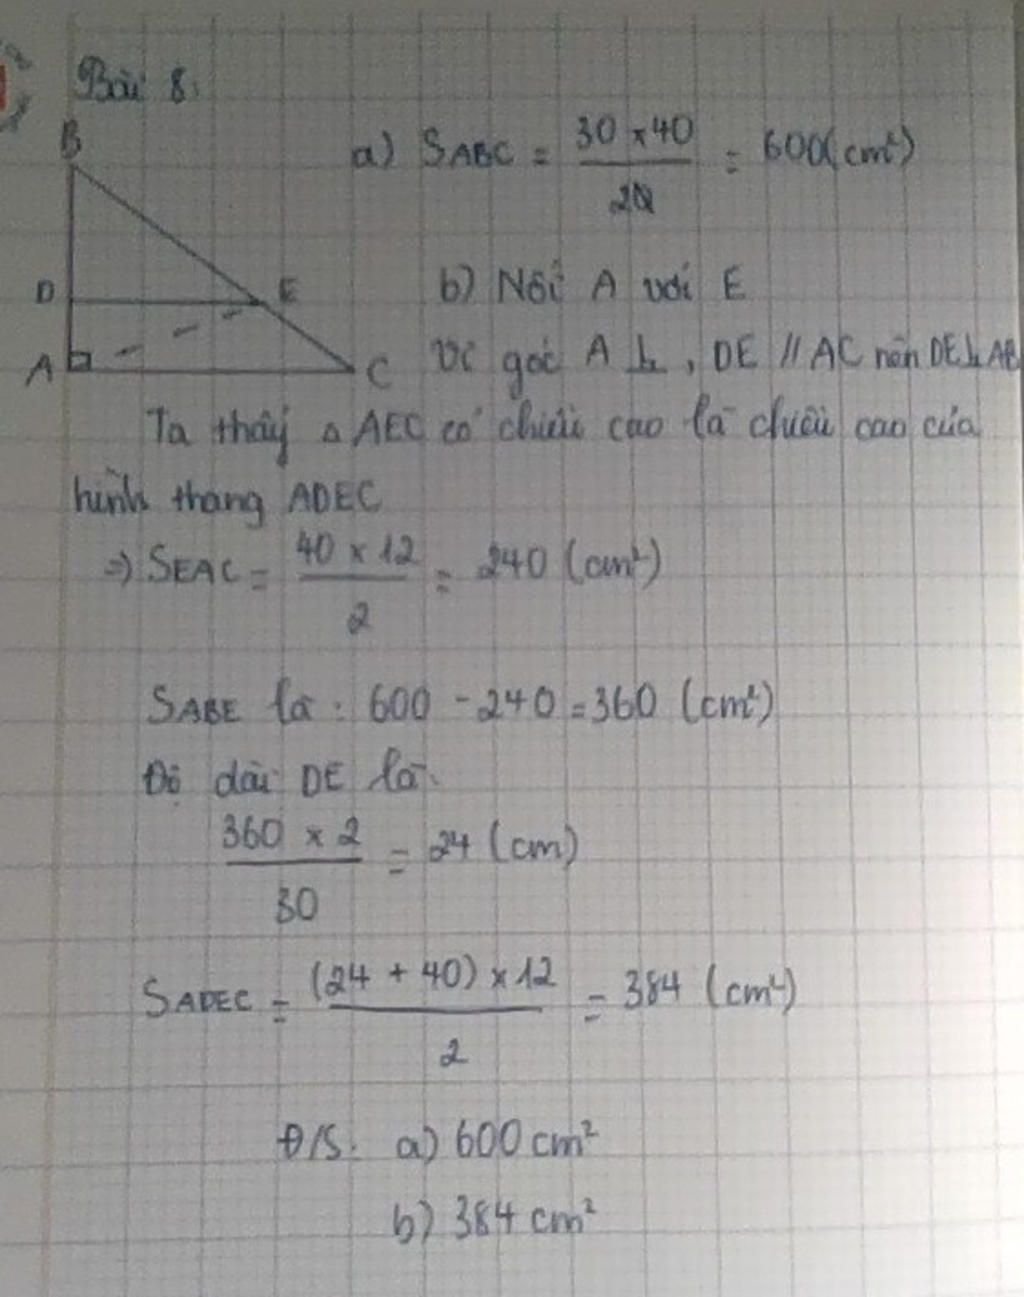 Bài 8:
B
a) SABC = 30 x 40 / 2 = 600(cm²)
D E
b) Nối A với E
A C
Vì góc A ⊥, DE // AC nên DE ⊥ AB
Ta thấy △ AEC có chiều cao là chiều cao của
hình thang ADEC
=> SEAC = 40 x 12 / 2 = 240 (cm²)
SABE là : 600 - 240 = 360 (cm²)
Độ dài DE là:
360 x 2 / 30 = 24 (cm)
SADEC = (24 + 40) x 12 / 2 = 384 (cm²)
Đ/S: a) 600 cm²
b) 384 cm²